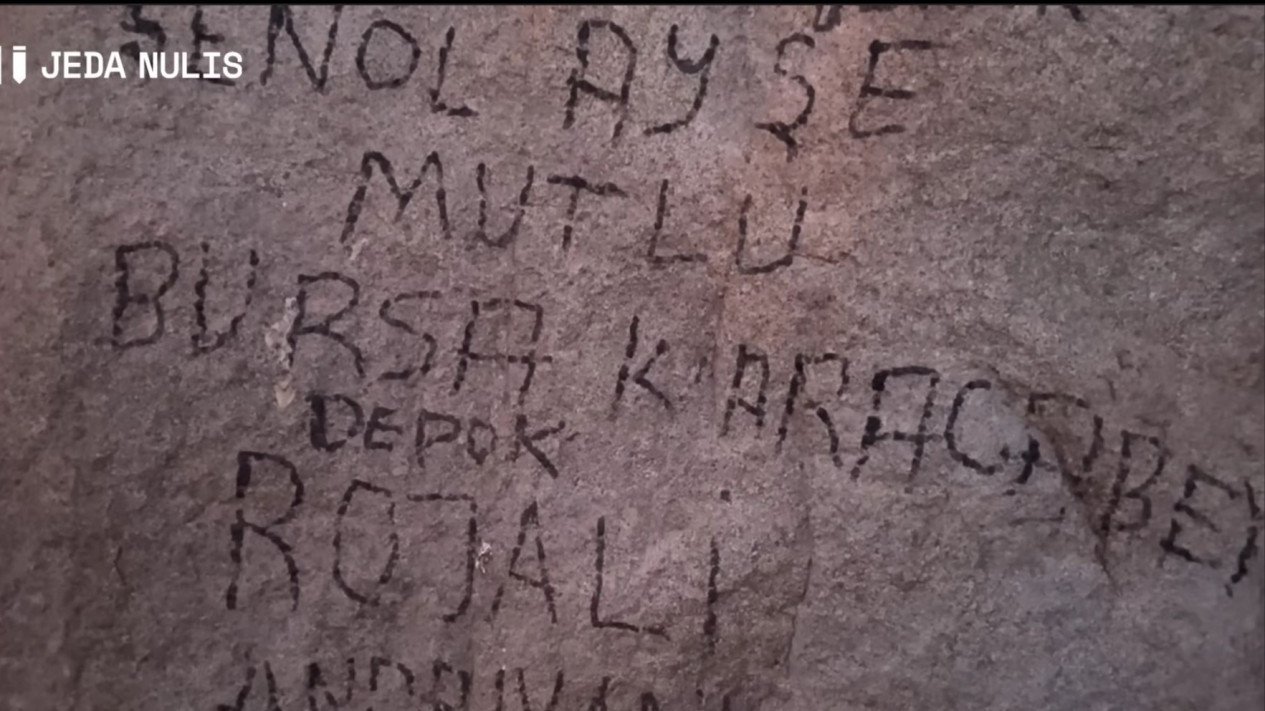 JEDA NULIS
SENOL AYŞE
MUTLU
BURSA KARACABEY
DEPOK
ROJALi